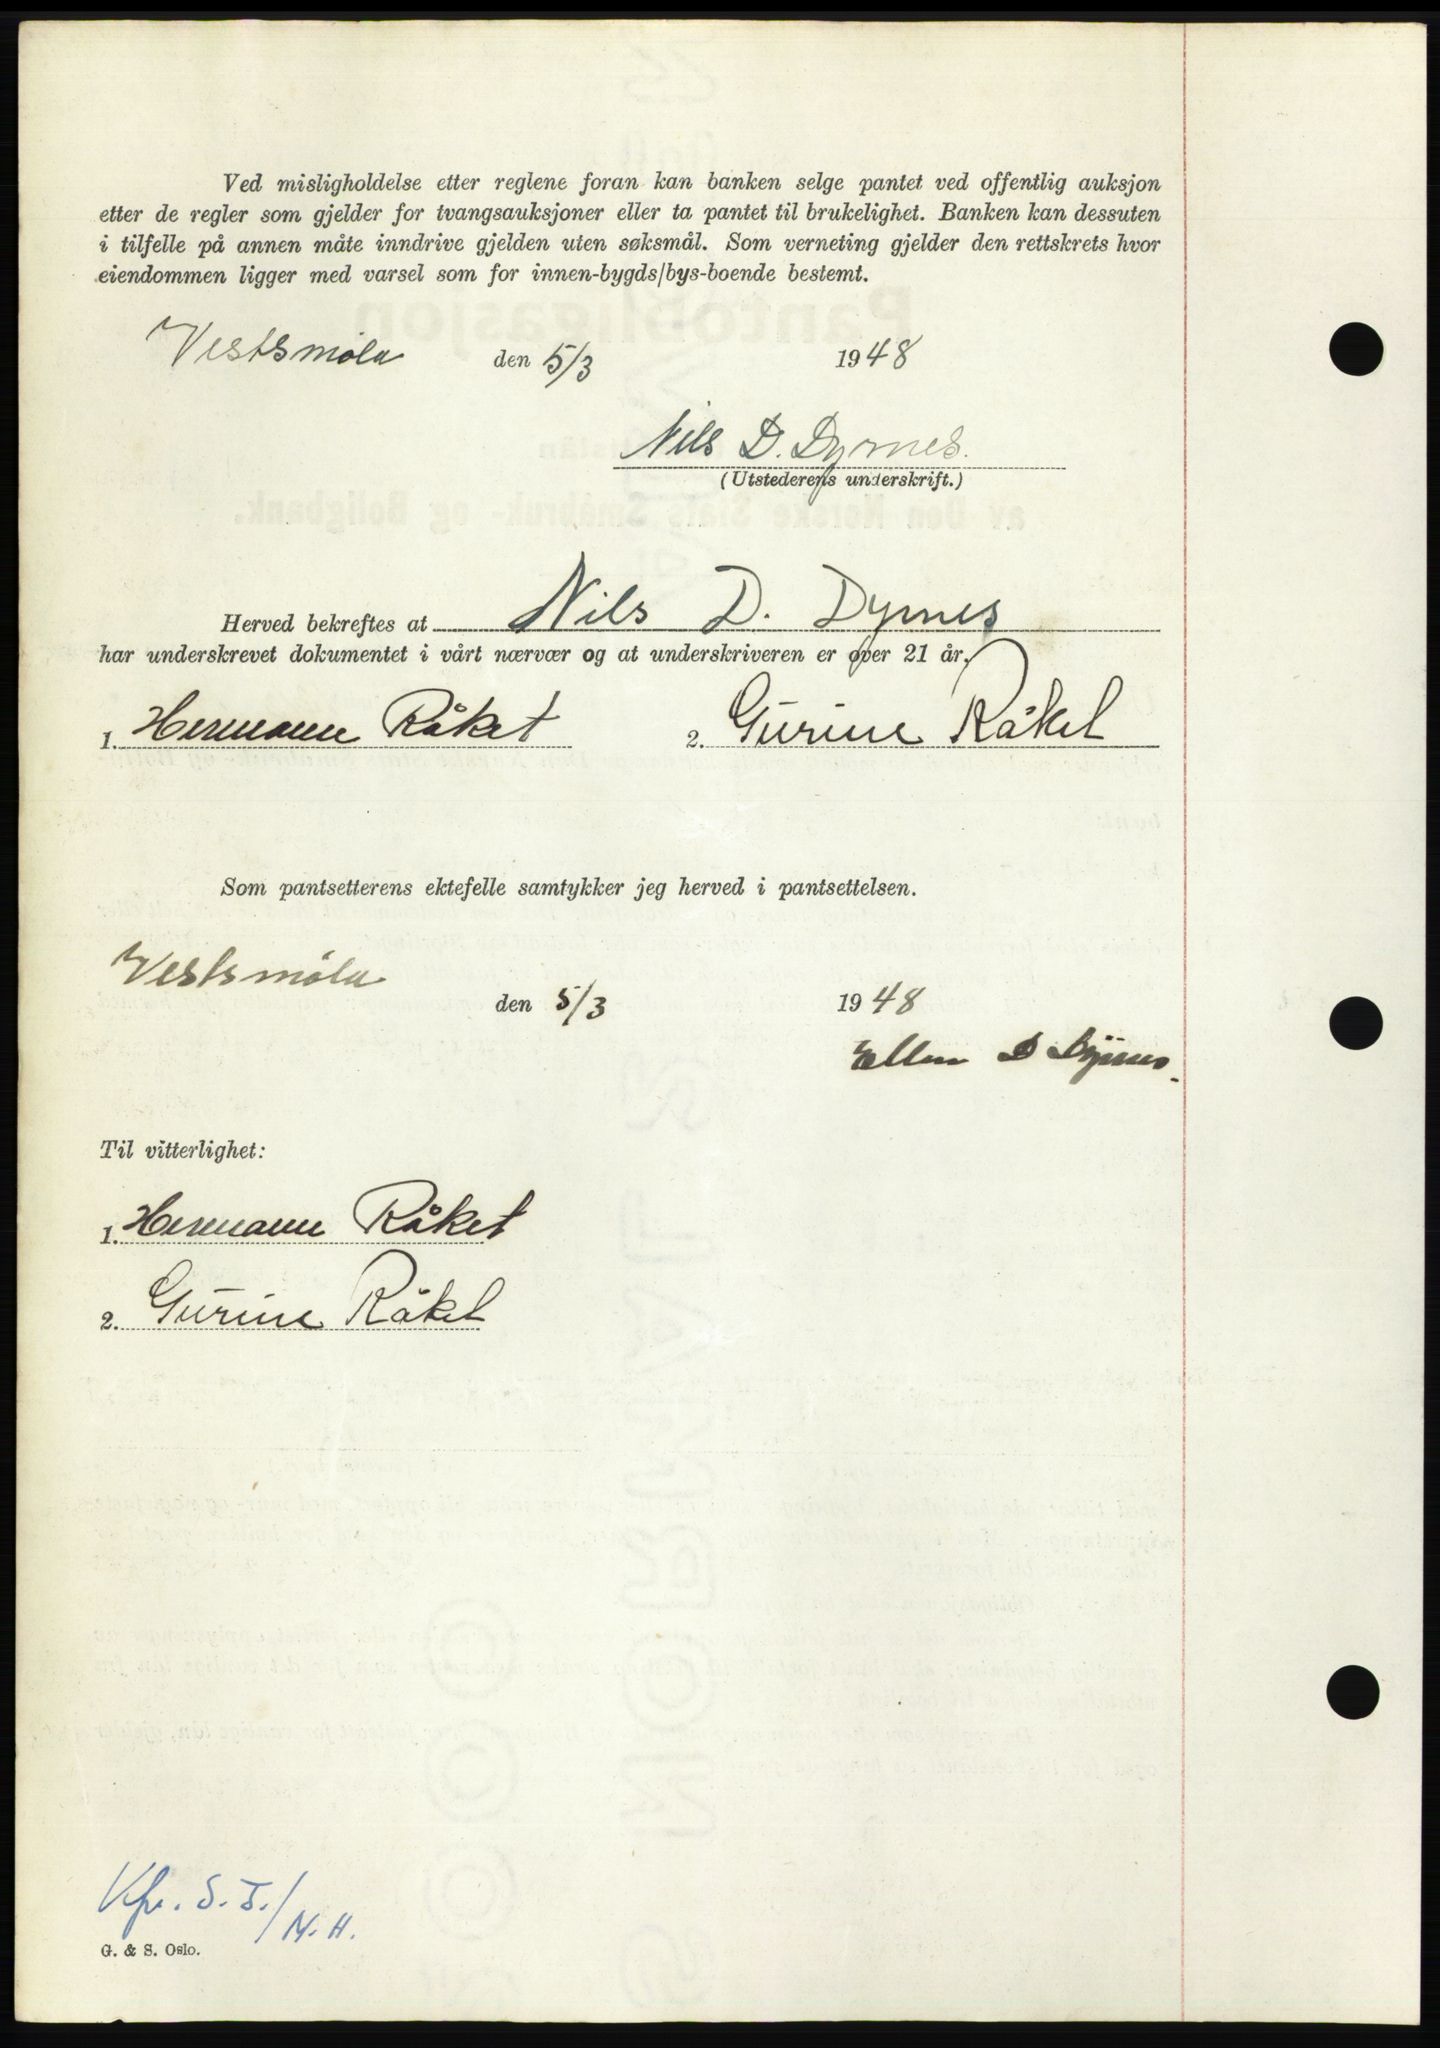 Ved misligholdelse etter reglene foran kan banken selge pantet ved offentlig auksjon
etter de regler som gjelder for tvangsauksjoner eller ta pantet til brukelighet. Banken kan dessuten
i tilfelle på annen måte inndrive gjelden uten søksmål. Som verneting gjelder den rettskrets hvor
eiendommen ligger med varsel som for innen-bygds/bys-boende bestemt.
Vestsmøla den 5/3 1948
Nils D. Dyrnes.
(Utstederens underskrift.)
Herved bekreftes at Nils D. Dyrnes
har underskrevet dokumentet i vårt nærvær og at underskriveren er over 21 år.
1. Hermann Råket 2. Gurine Råket
Som pantsetterens ektefelle samtykker jeg herved i pantsettelsen.
Vestsmøla
den 5/3 1948
Ellen D Dyrnes.
Til vitterlighet:
1. Hermann Råket
2. Gurine Råket
Kfr. S. T./N. H.
G. & S. Oslo.